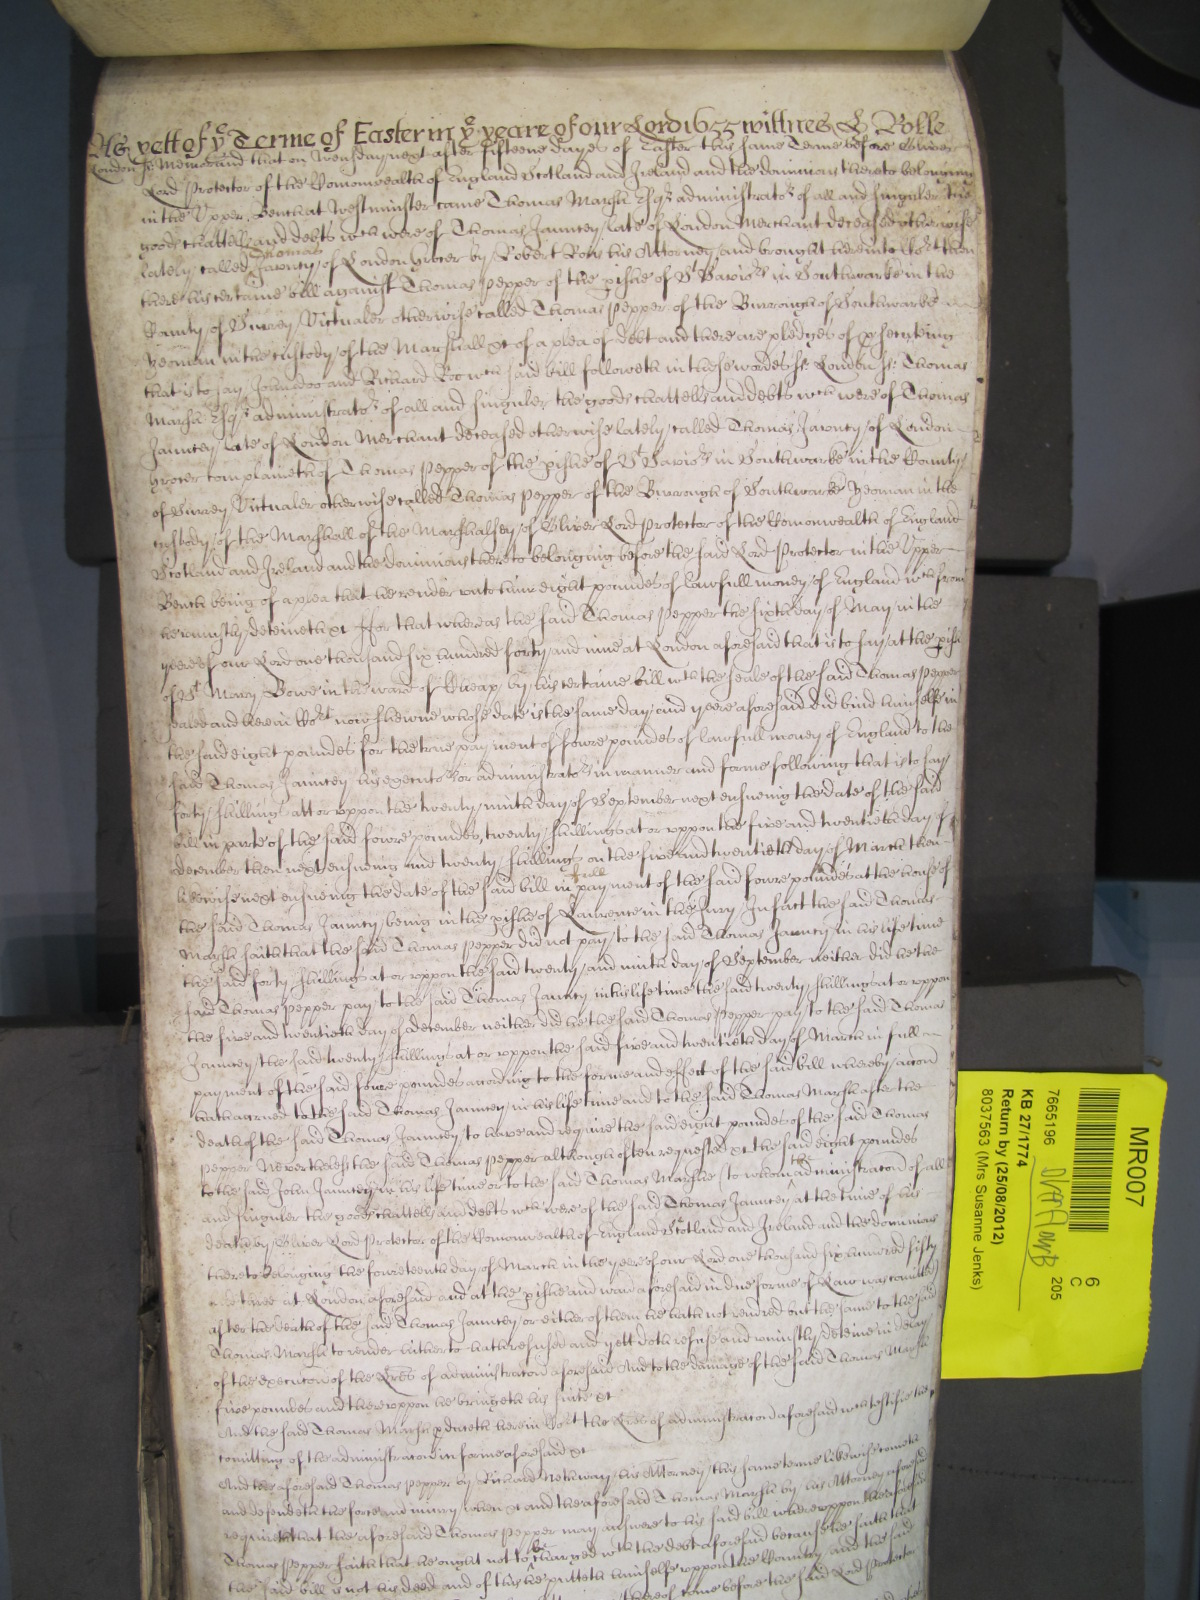 As yett of ye Terme of Easter in ye yeare of our Lord 1655 wittnes H Rolle
London ss Memorand that on Wensday next after fifteene dayes of Easter this same Terme before Oliver
Lord Protector of the Comonwealth of England Scotland and Ireland and the dominions thereto belonging
in the Upper Bench at Westminster came Thomas Marsh Esqr administrator of all and singuler the
goods chattells and debts wch were of Thomas Jauncey late of London Merchant deceased otherwise
lately called Thomas Jauncy of London Grocer by Robert his Attorney and brought here into Cort then
there his certaine bill against Thomas Pepper of the pishe of St Saviors in Southwarke in the
County of Surrey Victualer otherwise called Thomas Pepper of the Burrough of Southwarke
Yeoman in the custody of the Marshall &c of a plea of debt and there are pledges of psecuting
that is to say John doo and Richard Roo wch said bill followeth in these wordes ss London ss Thomas
Marsh Esqr administrator of all and singuler the goods chattells and debts wch were of Thomas
Jauncey late of London Merchant deceased otherwise lately called Thomas Jauncy of London
Grocer complaineth of Thomas Pepper of the pishe of St Saviors in Southwarke in the County
of Surrey Victualer otherwise called Thomas Pepper of the Burrough of Southwarke Yeoman in the
custody of the Marshall of the Marshalsey of Oliver Lord Protector of the Comonwealth of England
Scotland and Ireland and the dominions thereto belonging before the said Lord Protector in the Upper
Bench being of a plea that he render unto him eight poundes of lawfull money of England wch from
he uniustly deteineth &c ffor that whereas the said Thomas Pepper the sixth day of May in the
yeere of our Lord one thousand six hundred forty and nine at London aforesaid that is to say at the pish
of St Mary Bowe in the ward of Cheap by his certaine bill wth the seale of the said Thomas Pepper
sealed and herein Cort now shewne whose date is the same day and yeere aforesaid did bind himselfe in
the said eight poundes for the true payment of fowre poundes of lawfull money of England to the
said Thomas Jauncey his executors or administrators in manner and forme following that is to say
forty shillings att or uppon the twenty ninth day of September next ensueing the date of the said
bill in parte of the said fowre poundes, twenty shillings at or uppon the five and twentieth day of
december then next ensueing and twenty shillings on the five and twentieth day of March then
likewise next ensueing the date of the said bill in full payment of the said fowre poundes at the house of
the said Thomas Jauncey being in the pishe of Laurence in the Jury In fact the said Thomas
Marsh saith that the said Thomas Pepper did not pay to the said Thomas Jauncey in his life time
the said forty shillings at or uppon the said twenty and ninth day of September neither did he the
said Thomas Pepper pay to the said Thomas Jauncey in his life time the said twenty shillings at or uppon
the five and twentieth day of december neither did he the said Thomas Pepper pay to the said Thomas
Jauncey the said twenty shillings at or uppon the said five and twentieth day of March in full
payment of the said fowre poundes according to the forme and effect of the said bill whereby accon
hath accrued to the said Thomas Jauncey in his life time and to the said Thomas Marsh after the
death of the said Thomas Jauncey to have and require the said eight poundes of the said Thomas
Pepper Neverthelesse the said Thomas Pepper although often requested &c the said eight poundes
to the said John Jauncey in his life time or to the said Thomas Marshe (to whom the administracon of all
and singuler the goods chattells and debts wch were of the said Thomas Jauncey at the time of his
death by Oliver Lord Protector of the Comonwealth of England Scotland and Ireland and the dominions
thereto belonging the fowreteenth day of March in the yeere of our Lord one thousand six hundred fifty
and three at London aforesaid and at the pishe and ward aforesaid in due forme of Law was comitted
after the death of the said Thomas Jauncey or either of them he hath not rendred but the same to the said
Thomas Marsh to render hitherto hath refused and yett doth refuse and uniustly deteine in delay
of the execucon of the Lres of administracon aforesaid And to the damage of the said Thomas Marsh
five poundes and thereuppon he bringeth his suite &c
And the said Thomas Marsh pduceth herein Cort the Lres of administracon aforesaid wch testifie the
comitting of the administracon in forme aforesaid &c
And the aforesaid Thomas Pepper by Richard his Attorney this same terme likewise cometh
and defendeth the force and iniury when &c and the aforesaid Thomas Marsh by his Attorney aforesaid
requireth that the aforesaid Thomas Pepper may answere to his said bill whereuppon the aforesaid
Thomas Pepper saith that he ought not to be charged wth the debt aforesaid because he saith that
the said bill is not his deed and of this he putteth himselfe uppon the Country and the said
come before the said Lord Protector
MR007
6
C
205
7665196
KB 27/1774
Return by (25/08/2012)
8037563 (Mrs Susanne Jenks)